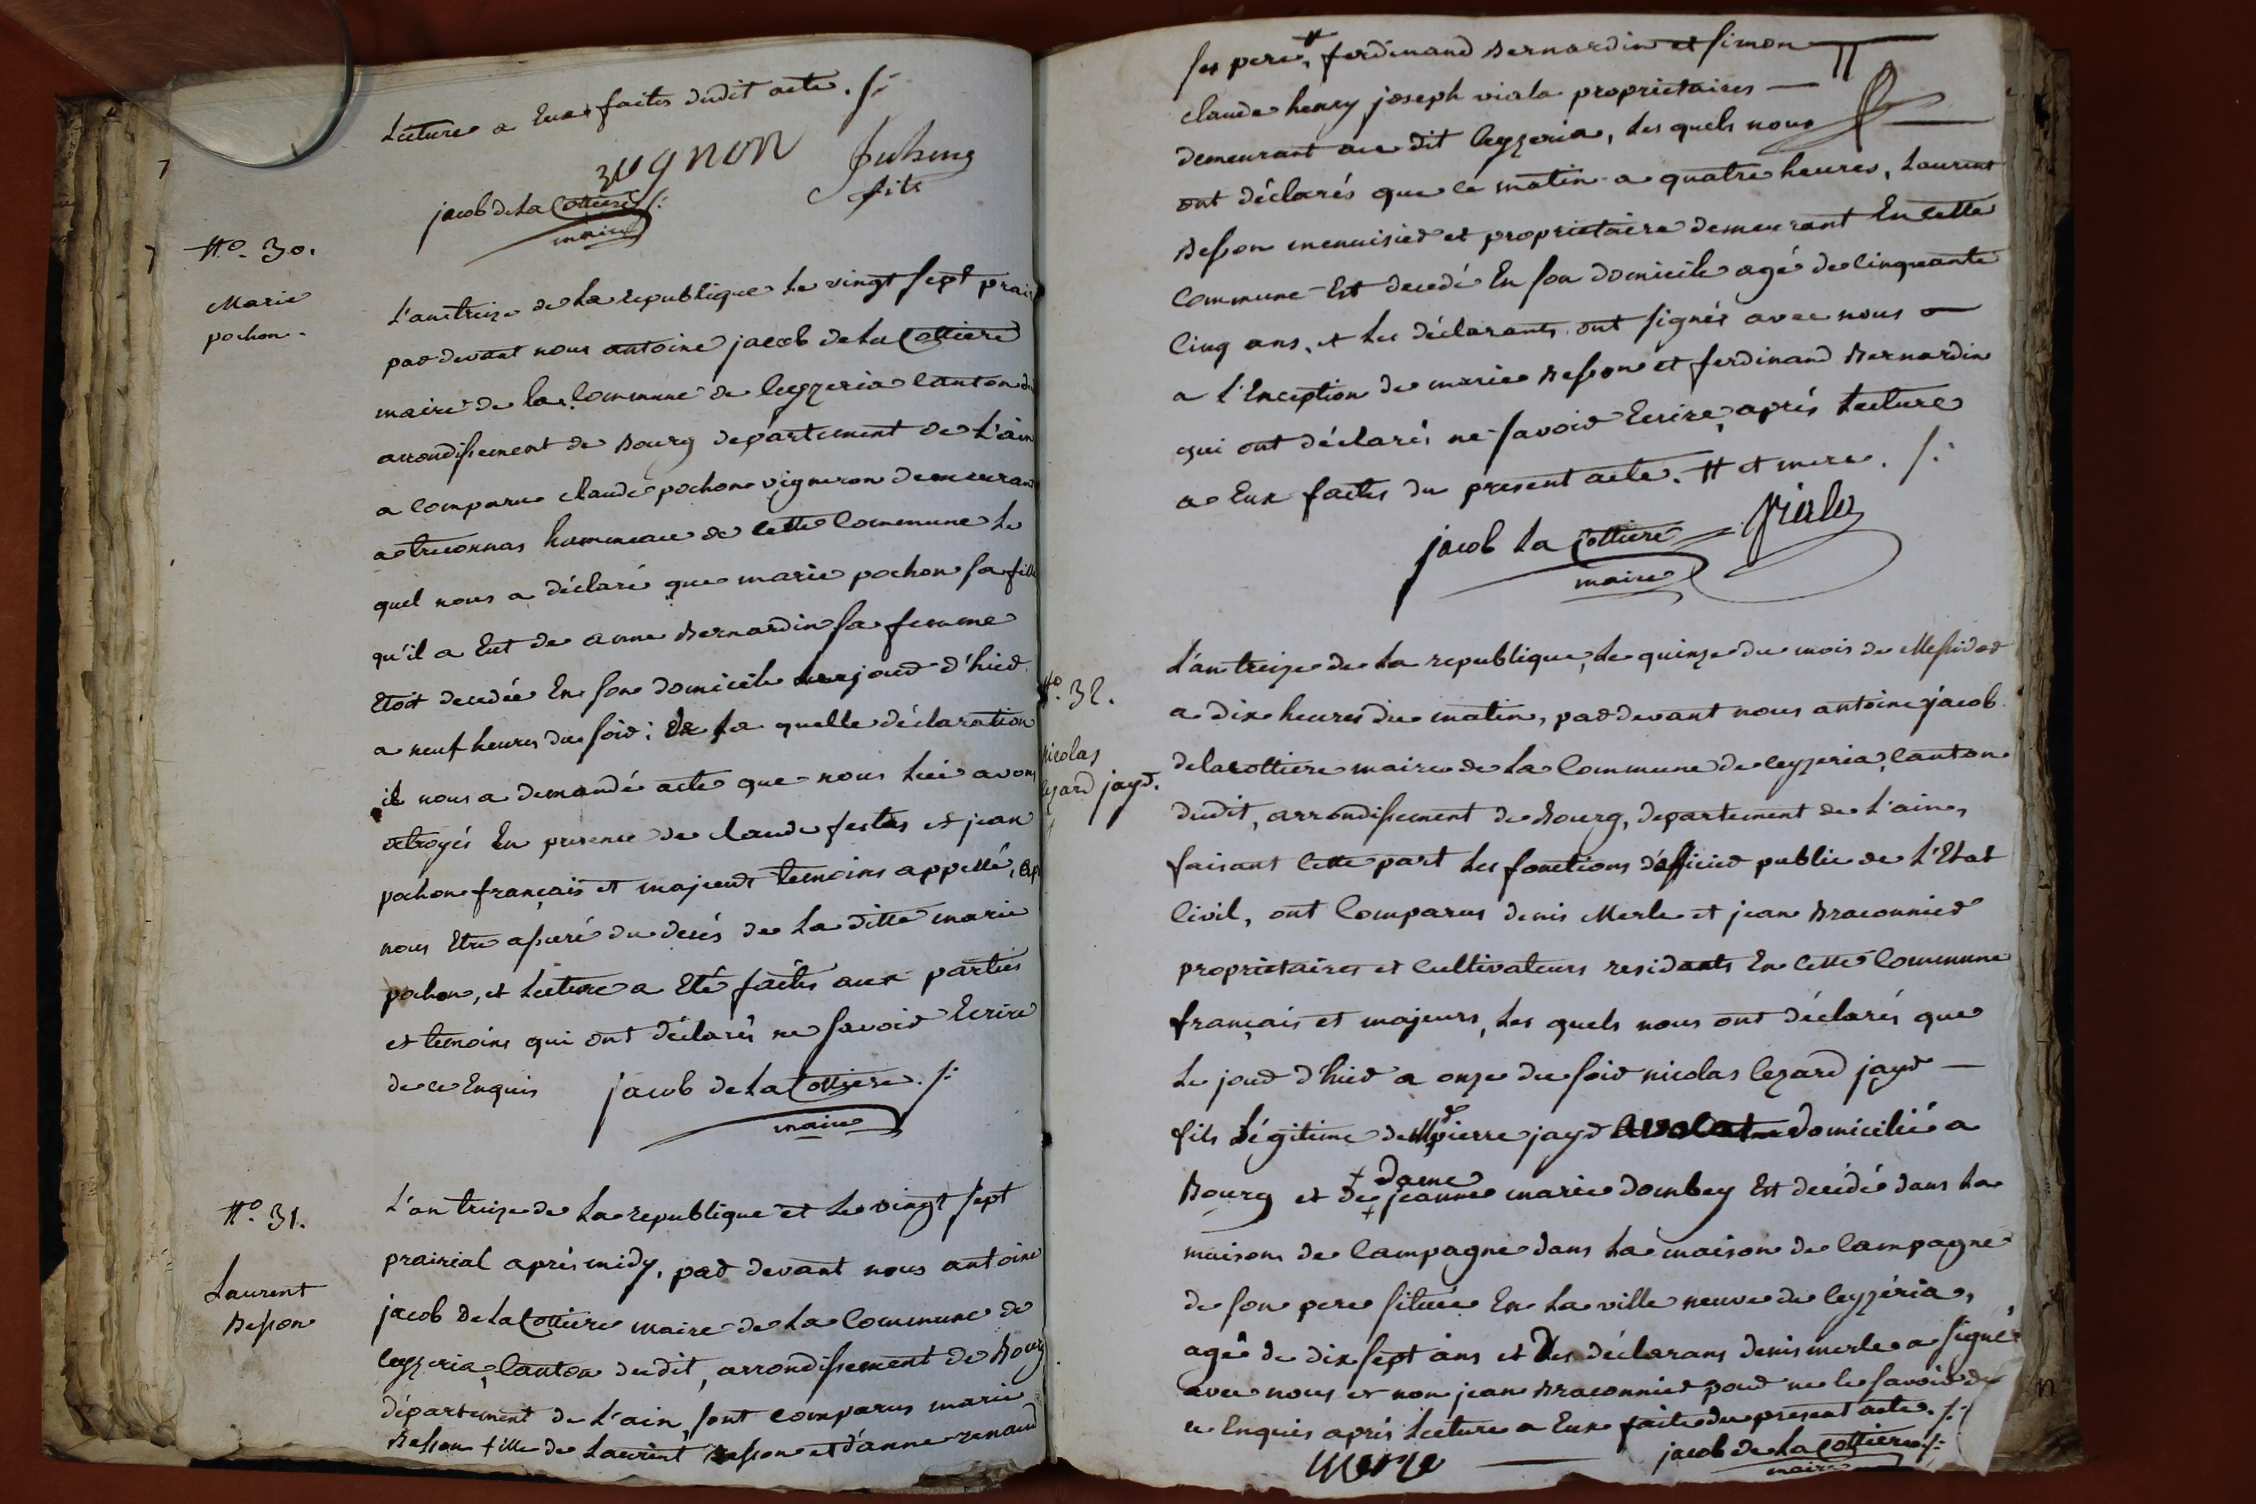 Lecture a Eux faites dudit acte ./:
zugnon
fils
jacob de La Cottiere /:
maire
N.o 30.
Marie
pochon.
L'an treize de La republique Le vingt sept prair
par devant nous antoine jacob de La Cottiere
maire de la Commune de Ceyzeria Canton du
arrondissement de Bourg departement de L'ain
a Comparu claude pochon vigneron demeurant
a treconnas hammeau de cette Commune Le
quel nous a déclaré que marie pochon sa fille
qu'il a Eut de anne Bernardin sa femme
Etoit decedée En son domicile Le jour d'hier
a neuf heures du soir; de La quelle déclaration
il nous a demandé acte que nous Lui avons
octroyés En presence de claude festas et jean
pochon français et majeurs temoins appellé, ap
nous Etre assuré du decés de La ditte marie
pochon, et Lecture a Eté faites aux parties
et temoins qui ont déclarés ne savoir Ecrire
de ce Enquis jacob de La Cottiere ./:
maire
N.o 31.
Laurent
Besson
L'an treize de La republique et Le vingt sept
prairial aprés midy, par devant nous antoine
jacob De La Cottiere maire de La Commune de
Ceyzeria, Canton dudit, arrondissement de Bourg
département de L'ain, sont comparus marie
Besson fille de Laurent Besson et d'anne renaud
ses pere #, ferdinand Bernardin et simon
claude henry joseph viala proprietaires —
demeurant au dit Ceyzeria, Les quels nous
ont déclarés que ce matin a quatre heures, Laurent
Besson menuisier et proprietaire demeurant En cette
Commune Est decedé En son domicile agé de Cinquante
Cinq ans, et Les déclarants ont signés avec nous —
a L'Exception de marie Besson et ferdinand Bernardin
qui ont déclarés ne savoir Ecrire, aprés Lecture
a Eux faites du present acte. # et mere. /:
jacob La Cottiere Viala
maire
N.o 32.
Nicolas
Cezard jayr.
L'an treize de La republique, Le quinze du mois de Messidor
a dix heures du matin, par devant nous antoine jacob
delacottiere maire de La Commune de Ceyzeria, Canton
dudit, arrondissement de Bourg, departement de L'ain,
faisant Cette part Les fonctions d'officier public de L'Etat
Civil, ont Comparus denis Merle et jean Braconnier
proprietaires et Cultivateurs residants En Cette Commune
français et majeurs, Les quels nous ont déclarés que
Le jour d'hier a onze du soir nicolas Cezard jayr —
fils Légitime de Mr pierre jayr avocat domicilié a
Bourg et de + dame jeanne marie dombey Est decédé dans La
maison de Campagne dans La maison de Campagne
de son pere située En La ville neuve de Ceyzéria,
agé de dix sept ans et Les déclarans denis merle a signé
avec nous et non jean Braconnier pour ne le savoir de
ce Enquis aprés Lecture a Eux faite du present acte. /:
merle — jacob de La Cottiere /:
maire